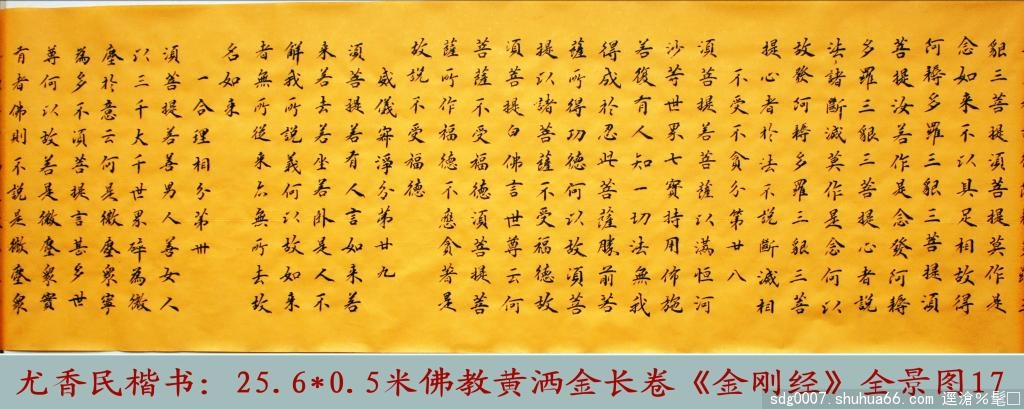 貌三菩提須菩提莫作是
念如来不以具足相故得
阿耨多羅三貌三菩提須
菩提汝若作是念發阿耨
多羅三貌三菩提心者說
法諸斷滅莫作是念何以
故發阿耨多羅三貌三菩
提心者於法不說斷滅相
不受不貪分第廿八
須菩提若菩薩以滿恒河
沙等世界七寶持用佈施
若復有人知一切法無我
得成於忍此菩薩勝前菩
薩所得功德何以故須菩
提以諸菩薩不受福德故
須菩提白佛言世尊云何
菩薩不受福德須菩提菩
薩所作福德不應貪著是
故說不受福德
威儀寂淨分第廿九
須菩提若有人言如来若
来若去若坐若卧是人不
解我所說義何以故如来
者無所從来亦無所去故
名如来
一合理相分第卅
須菩提若善男人善女人
以三千大千世界碎為微
塵於意云何是微塵衆寧
為多不須菩提言甚多世
尊何以故若是微塵衆實
有者佛則不說是微塵衆
尤香民楷书：25.6*0.5米佛教黄洒金长卷《金刚经》全景图17
sdg0007.shuhua66.com